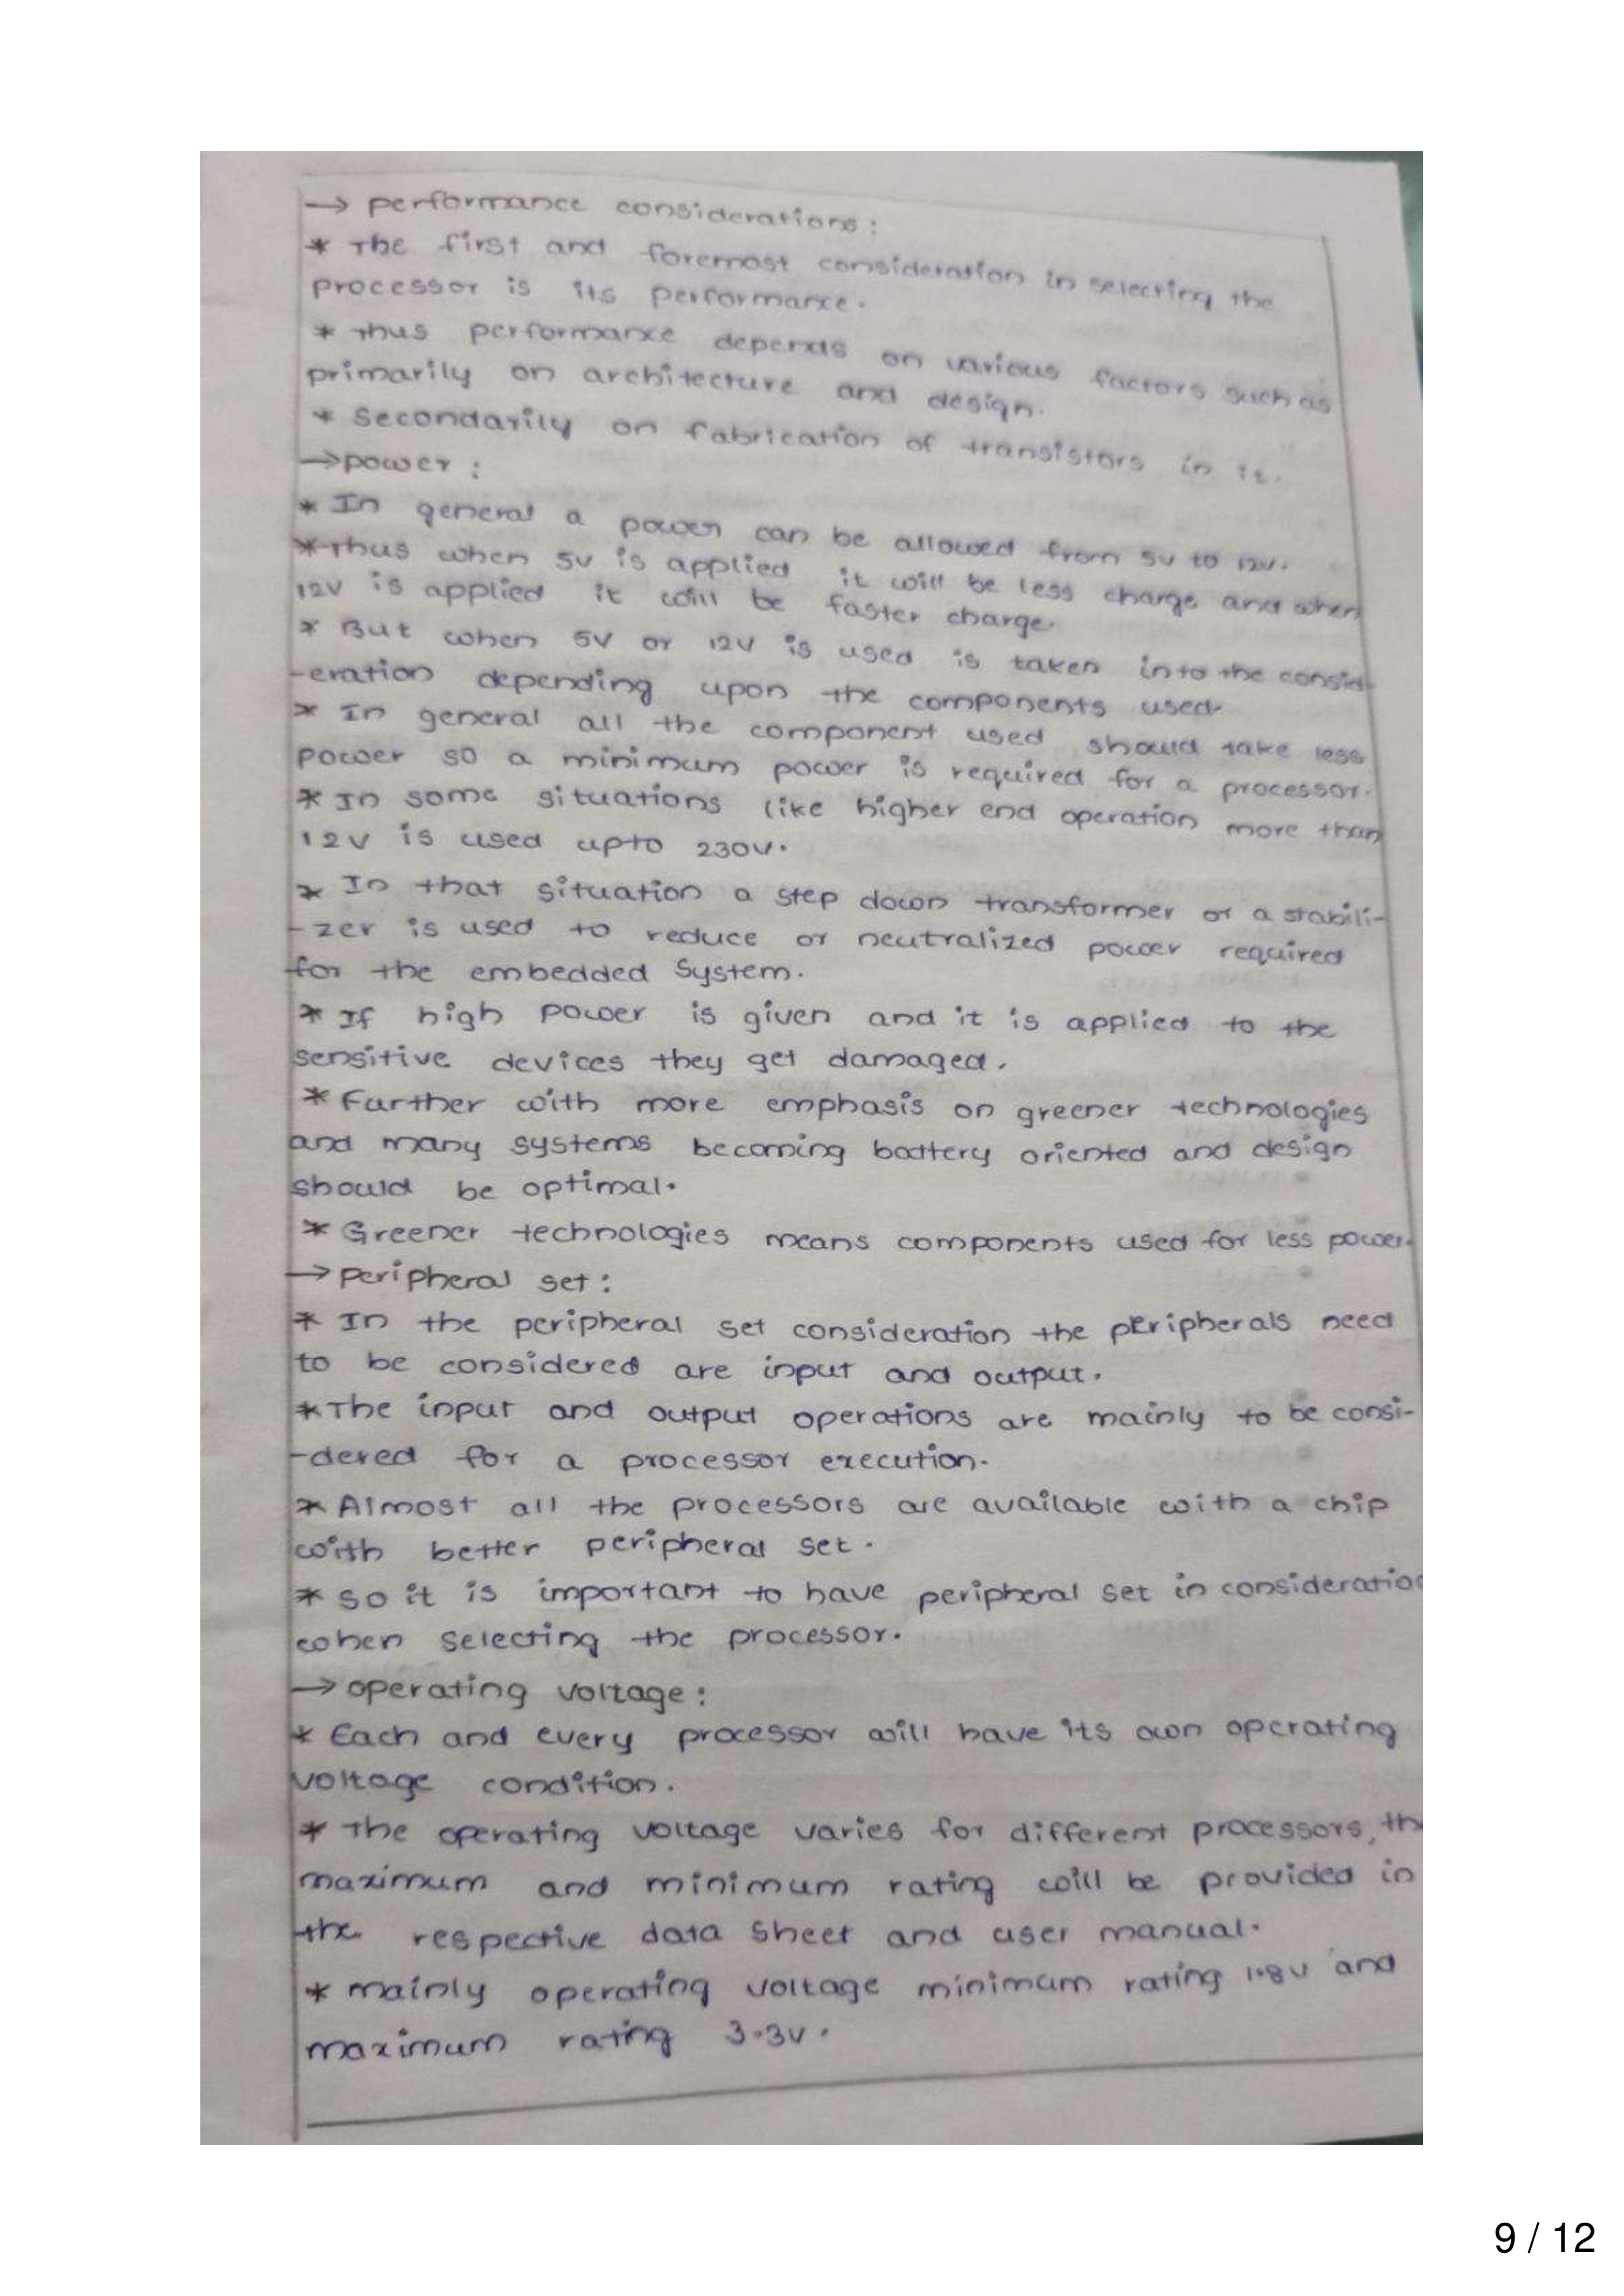 → performance considerations :
* The first and foremost consideration in selecting the
processor is its performance.
* Thus performance depends on various factors such as
primarily on architecture and design.
* Secondarily on fabrication of transistors in it.
→ power :
* In general a power can be allowed from 5v to 12v.
* Thus when 5v is applied it will be less charge and when
12v is applied it will be faster charge.
* But when 5V or 12V is used is taken into the consid-
-eration depending upon the components used.
* In general all the component used should take less
power so a minimum power is required for a processor.
* In some situations like higher end operation more than
12v is used upto 230v.
* In that situation a step down transformer or a stabili-
-zer is used to reduce or neutralized power required
for the embedded System.
* If high power is given and it is applied to the
sensitive devices they get damaged.
* Further with more emphasis on greener technologies
and many systems becoming battery oriented and design
should be optimal.
* Greener technologies means components used for less power.
→ peripheral set :
* In the peripheral set consideration the peripherals need
to be considered are input and output.
* The input and output operations are mainly to be consi-
-dered for a processor execution.
* Almost all the processors are available with a chip
with better peripheral set.
* so it is important to have peripheral set in consideration
when selecting the processor.
→ operating voltage :
* Each and every processor will have its own operating
voltage condition.
* The operating voltage varies for different processors, th
maximum and minimum rating will be provided in
the respective data sheet and user manual.
* mainly operating voltage minimum rating 1.8v and
maximum rating 3.3v.
9 / 12